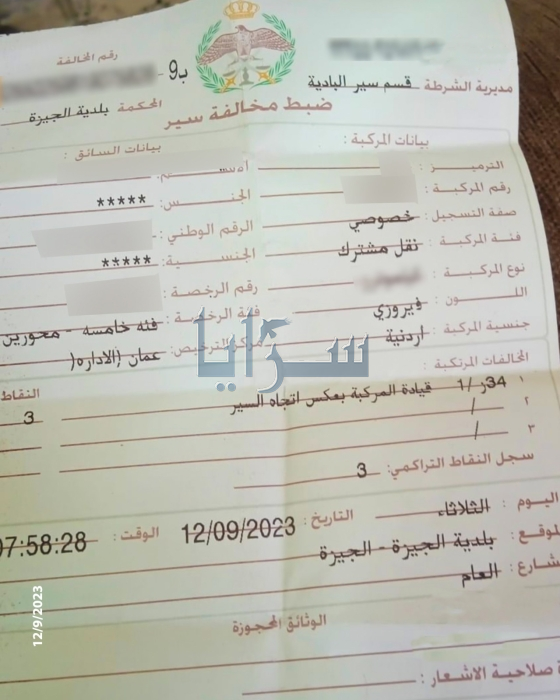 رقم المخالفة
ب9 -
مديرية الشرطة قسم سير البادية
المحكمة بلدية الجيزة
ضبط مخالفة سير
بيانات المركبة :
بيانات السائق :
الترميـــز :
رقم المركبة :
الجنـــس : *****
صفة التسجيل : خصوصي
الرقم الوطني :
فئة المركبة : نقل مشترك
الجنســـية : *****
نوع المركبة :
رقم الرخصة :
اللـــون : فيروزي
فئة الرخصة : فئه خامسه - محورين
جنسية المركبة : اردنية
مركز الترخيص : عمان (الاداره(
سرايا
المخالفات المرتكبة :
النقاط
١ 34ر /1 قيادة المركبة بعكس اتجاه السير 3
٢ /
٣ /
سجل النقاط التراكمي: 3
اليوم : الثلاثاء
التاريخ : 12/09/2023 الوقت : 07:58:28
لموقع : بلدية الجيزة - الجيزة
شارع : العام
الوثائق المحجوزة
ة صلاحية الاشعار :
12/9/2023